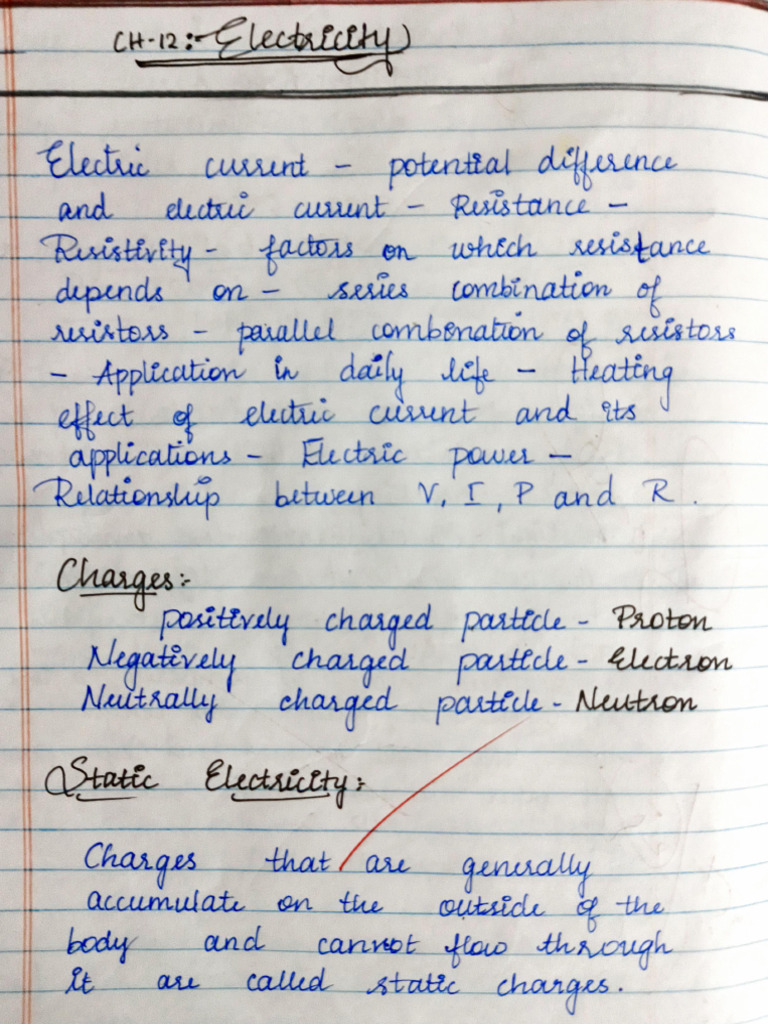 CH-12:- Electricity
Electric current - potential difference
and electric current - Resistance -
Resistivity - factors on which resistance
depends on - series combination of
resistors - parallel combination of resistors
- Application in daily life - Heating
effect of electric current and its
applications - Electric power -
Relationship between V, I, P and R.
Charges:-
positively charged particle - Proton
Negatively charged particle - Electron
Neutrally charged particle - Neutron
Static Electricity:-
Charges that are generally
accumulate on the outside of the
body and cannot flow through
it are called static charges.